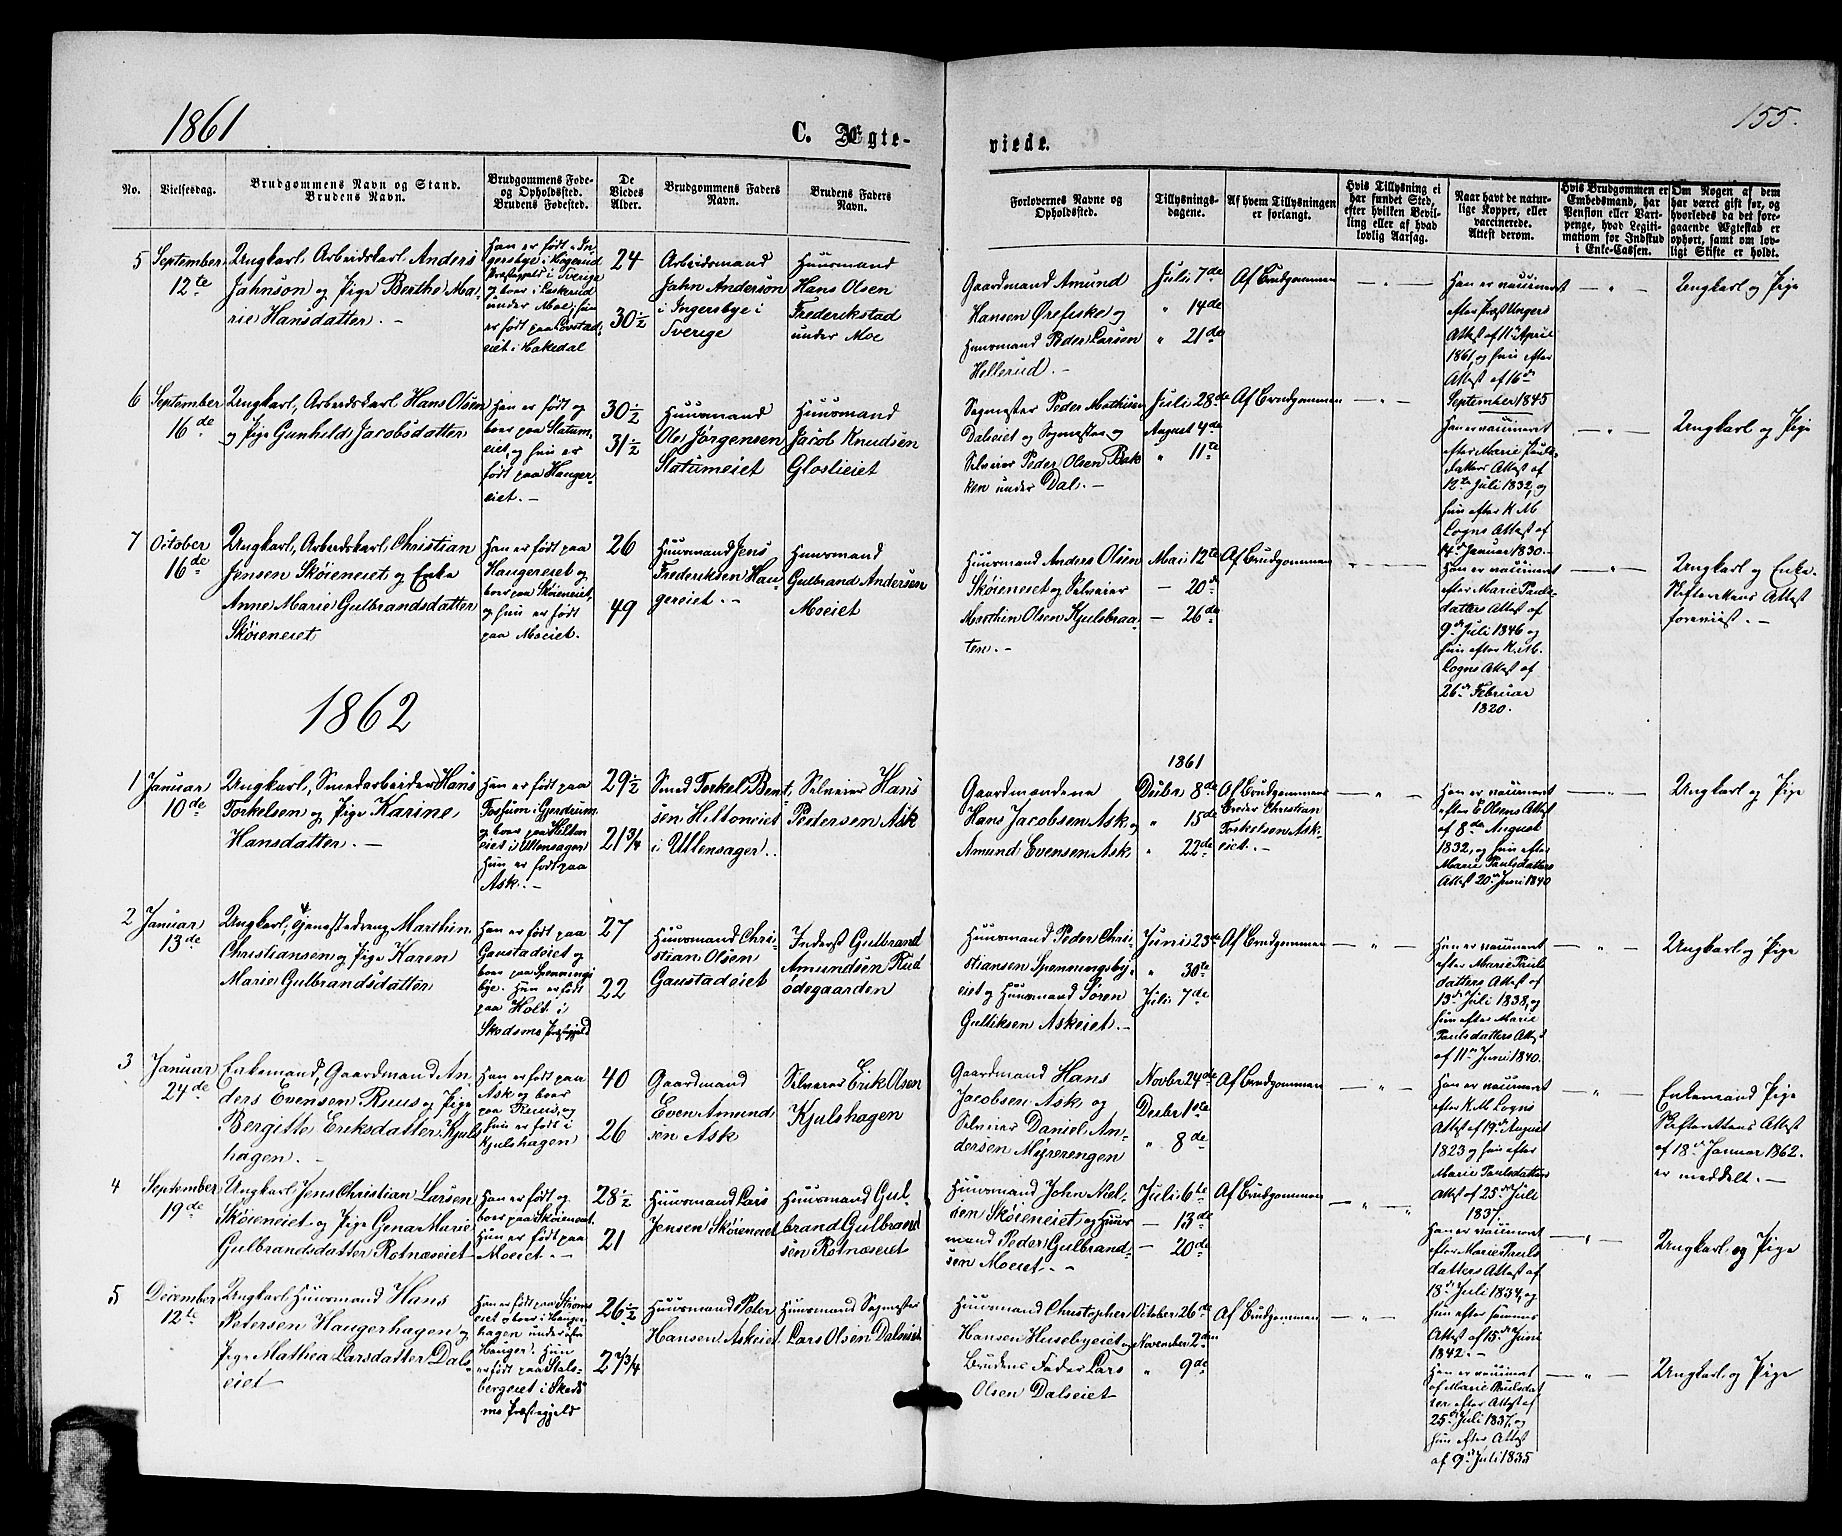 1861
C. Ægte-
viede.
155.
No.
Vielsesdag.
Brudgommens Navn og Stand.
Brudens Navn.
Brudgommens Føde-
og Opholdssted.
Brudens Fødested.
De
Viedes
Alder.
Brudgommens Faders
Navn.
Brudens Faders
Navn.
Forlovernes Navne og
Opholdssted.
Tillysnings-
dagene.
Af hvem Tillysningen
er forlangt.
Hvis Tillysning ei
har fundet Sted,
efter hvilken Bevil-
ling eller af hvad
lovlig Aarsag.
Naar havt de natur-
lige Kopper, eller
vaccinerede.
Attest derom.
Hvis Brudgommen er
Embedsmand, har
Pension eller Vart-
penge, hvad Legiti-
mation for Indskud
i Enke-Cassen.
Om Nogen af dem
har været gift før, og
hvorledes da det fore-
gaaende Ægteskab er
ophørt, samt om lov-
ligt Skifte er holdt.
5
September
12te
Ungkarl Arbeidskarl Anders
Jahnson og Pige Berthe Ma-
rie Hansdatter. -
Han er født i In-
gersbye i Høgerud
Præstegjeld i Sverige
og boer i Laskerud
under Moe, hun
er født paa Løvstad-
eiet i Hakedal
24
30 1/2
Arbeidsmand
Jahn Anderson
i Ingersbye i
Sverige
Huusmand
Hans Olsen
Frederikstad
under Moe
Gaardmand Amund
Hansen Ørefiske og
Huusmand Peder Larsen
Hellerud. -
Juli 7de
" 14de
" 21de
Af Brudgommen
- " -
Han er vaccineret
efter Præst Ungers
Attest af 11te April
1861, og hun efter
Attest af 16de
September 1845
- " -
Ungkarl og Pige
6
September
16de
Ungkarl, Arbeidskarl Hans Olsen
og Pige Gunhild Jacobsdatter
Han er født og
boer paa Slatum-
eiet, og hun er
født paa Hauger-
eiet. -
30 1/2
31 1/2
Huusmand
Ole Jørgensen
Slatumeiet
Huusmand
Jacob Knudsen
Gloslieiet
Sagmester Peder Mathisen
Dalseiet og Sagmester og
Selveier Peder Olsen Bak-
ken under Dal. -
Juli 28de
August 4de
" 11te
Af Brudgommen
- " -
Han er vaccineret
efter Marie Pauls-
datters Attest af
12te Juli 1832, og
hun efter K. M.
Logns Attest af
14de Januar 1830. -
- " -
Ungkarl og Pige
7
October
16de
Ungkarl, Arbeidskarl Christian
Jensen Skøieneiet og Enke
Anne Marie Gulbrandsdatter
Skøieneiet
Han er født paa
Haugereiet og
boer paa Skøieneiet,
og hun er født
paa Moeiet.
26
49
Huusmand Jens
Frederiksen Hau-
gereiet. -
Huusmand
Gulbrand Andersen
Moeiet
Huusmand Anders Olsen
Skøieneiet og Selveier
Marthin Olsen Kjulsbraa-
ten. -
Mai 12te
- 20de
- 26de
Af Brudgommen
- " -
Han er vaccineret
efter Marie Pauls-
datters Attest af
9de Juli 1846 og
hun efter K. M.
Logns Attest af
26de Februar
1820.
- " -
Ungkarl og Enke.
Skifterettens Attest
foreviist. -
1862
1
Januar
10de
Ungkarl, Smedarbeider Hans
Torkelsen og Pige Karine
Hansdatter. -
Han er født paa
Fossum i Gjerdrum
og boer paa Hilton-
eiet i Ullensager
Hun er født paa
Ask. -
29 1/2
21 3/4
Smed Torkel Bent-
sen Hiltoneiet
i Ullensager.
Selveier Hans
Pedersen Ask
Gaardmændene
Hans Jacobsen Ask og
Amund Evensen Ask.
1861
Decbr 8de
" 15de
" 22de
Af Brudgommens
Broder Christian
Torkelsen Ask-
eiet. -
- " -
Han er vaccineret
efter E. Olsens Attest
af 8de August
1832, og hun efter
Marie Paulsdatters
Attest 20de Juni 1840
- " -
Ungkarl og Pige
2
Januar
13de
Ungkarl, Tjenestedreng Marthin
Christiansen og Pige Karen
Marie Gulbrandsdatter
Han er født paa
Gaustadeiet og
boer paa Spennings-
bye. Hun er født
paa Holt i
Skedsmo Præstegjeld
27
22
Huusmand Chri-
stian Olsen
Gaustadeiet
Inderst Gulbrand
Amundsen Rud
ødegaarden
Huusmand Peder Chri-
stiansen Spenningsby-
eiet og Huusmand Søren
Gulliksen Askeiet. -
Juni 23de
" 30te
Juli 7de
Af Brudgommen
- " -
Han er vaccineret
efter Marie Pauls-
datters Attest af
13de Juli 1838, og
hun efter Marie
Paulsdatters Attest
af 11te Juni 1840.
- " -
Ungkarl og Pige
3
Januar
24de
Enkemand, Gaardmand An-
ders Evensen Ruus og Pige
Bergitte Eriksdatter Kjuls-
hagen. -
Han er født paa
Ask og boer
paa Ruus, og
hun er født i
Kjulshagen
40
26
Gaardmand
Even Amund-
sen Ask
Selveier Erik Olsen
Kjulshagen
Gaardmand Hans
Jacobsen Ask og
Selveier Daniel An-
dersen Myrerengen
Novbr 24de
Decbr 1ste
" 8de
Af Brudgommen
- " -
Han er vaccineret
efter K. M. Logns
Attest af 19de August
1823 og hun efter
Marie Paulsdatters
Attest af 25de Juli
1837
- " -
Enkemand Pige
Skifterettens Attest
af 18de Januar 1862.
er meddelt. -
4
September
19de
Ungkarl Jens Christian Larsen
Skøieneiet og Pige Gina Marie
Gulbrandsdatter Rotnæseiet
Han er født og
boer paa Skøieneiet.
Hun er født paa
Moeiet. -
28 1/2
21
Huusmand Lars
Jensen Skøieneiet
Huusmand Gul-
brand Gulbrand-
sen Rotnæseiet
Huusmand John Niel-
sen Skøieneiet og Huus-
mand Peder Gulbrand-
sen Moeiet. -
Juli 6te
- 13de
- 20de
Af Brudgommen
- " -
Han er vaccineret
efter Marie Pauls-
datters Attest af
18de Juli 1834, og
hun efter sammes
Attest af 15de Juni
1842. -
- " -
Ungkarl og Pige
5
December
12te
Ungkarl Huusmand Hans
Petersen Haugerhagen og
Pige Mathea Larsdatter Dals-
eiet
Han er født paa Strøms-
eiet og boer i Hauger-
hagen under Øfre
Hauger. Hun
er født paa Stals-
bergeiet i Skeds-
mo Præstegjeld
26 1/2
27 3/4
Huusmand Peter
Hansen Askeiet
Huusmand Sagmester
Lars Olsen Dalseiet
Huusmand Christopher
Hansen Husebyeiet og
Brudens Fader Lars
Olsen Dalseiet
October 26de
November 2den
" 9de
Af Brudgommen
- " -
Han er vaccineret
af Marie Paulsdat-
ter efter Attest af
25de Juli 1837, og
hun efter Attest
af 9de Juli 1835
- " -
Ungkarl og Pige